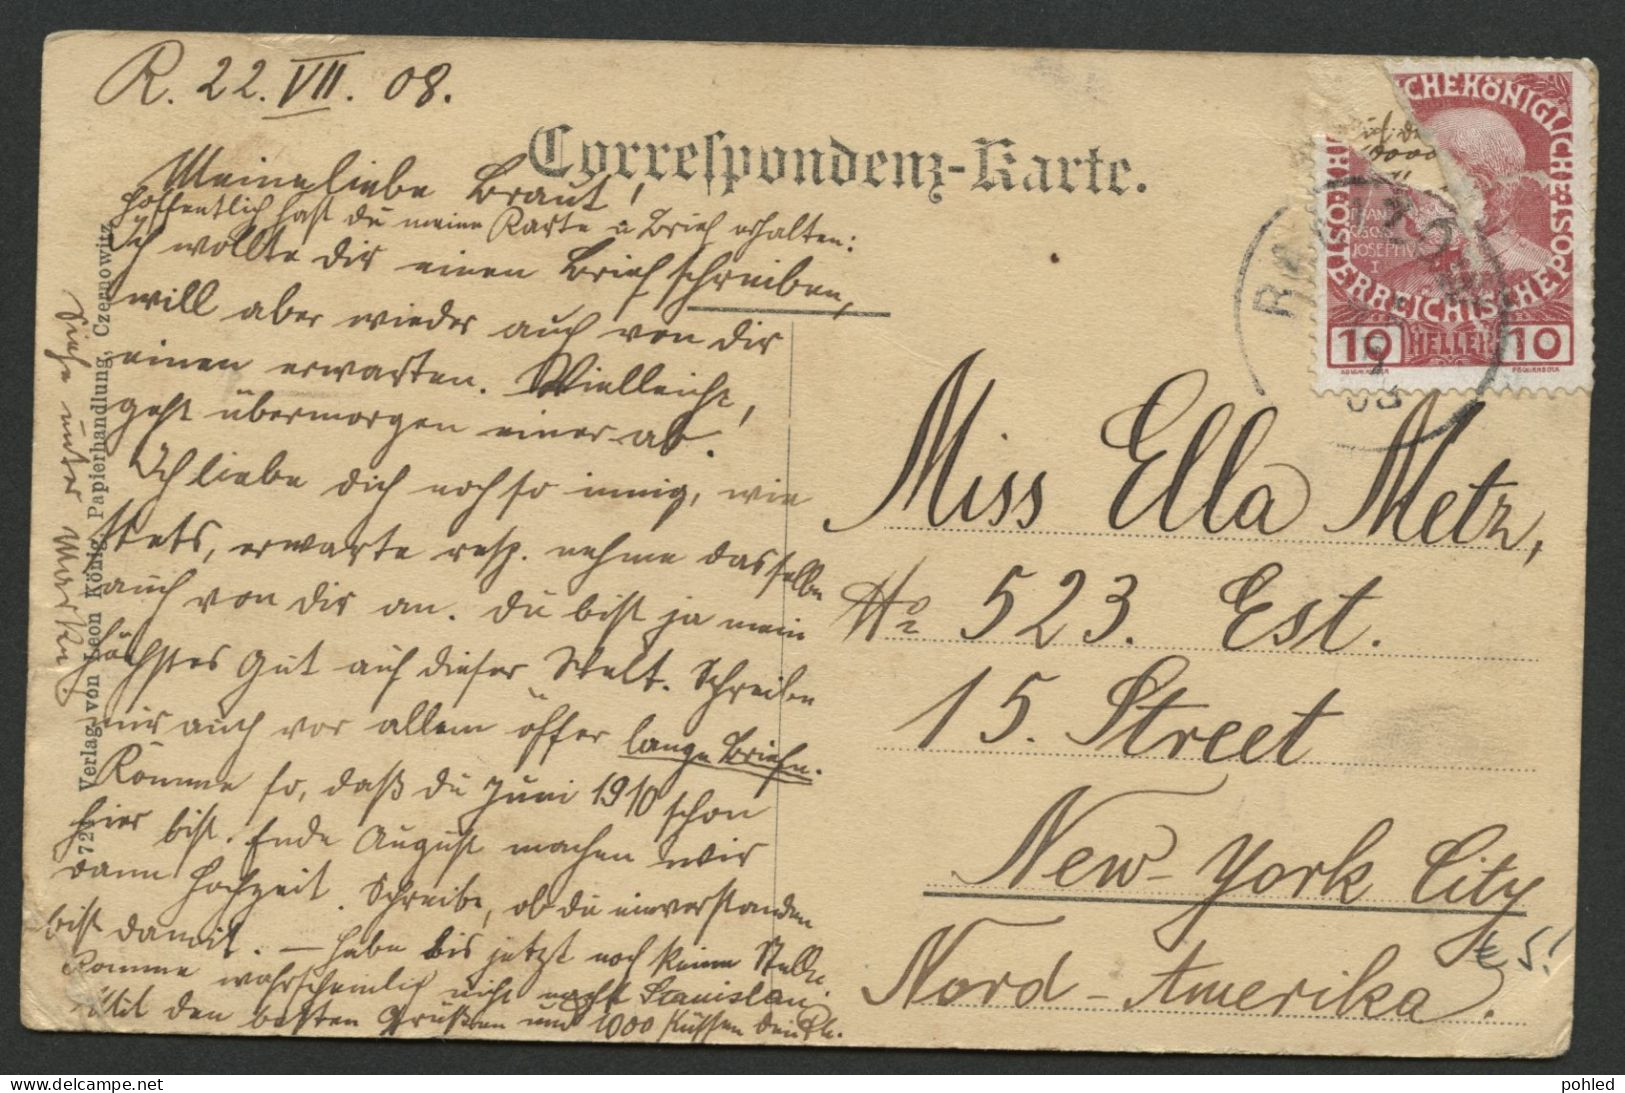 R. 22. VII. 08.
Correspondenz-Karte.
Meine liebe Braut!
Hoffentlich hast du meine Karte u Brief erhalten:
Ich wollte dir einen Brief schreiben,
will aber wieder auch von dir
einen erwarten. Vielleicht,
geht übermorgen einer ab.
Ich liebe dich noch so innig, wie
stets, erwarte resp. nehme dasselbe
auch von dir an. Du bist ja mein
höchstes Gut auf dieser Welt. Schreibe
mir auch vor allem öffter lange Briefe.
Komme so, daß du Juni 1910 schon
hier bist. Ende August machen wir
dann Hochzeit. Schreibe, ob du einverstanden
bist damit. — habe bis jetzt noch keine Stelle.
Komme wahrscheinlich nicht nach Stanislau
Mit den besten Grüßen und 1000 Küssen dein R.
Siehe unter Marke!
724 Verlag von Leon König, Papierhandlung, Czernowitz
CHEKÖNIGLICHE
ÖSTERREICHISCHE POST
10 HELLER 10
Miss Ella Metz,
No 523. Est.
15. Street
New-York City
Nord-Amerika.
€ 5!
pohled